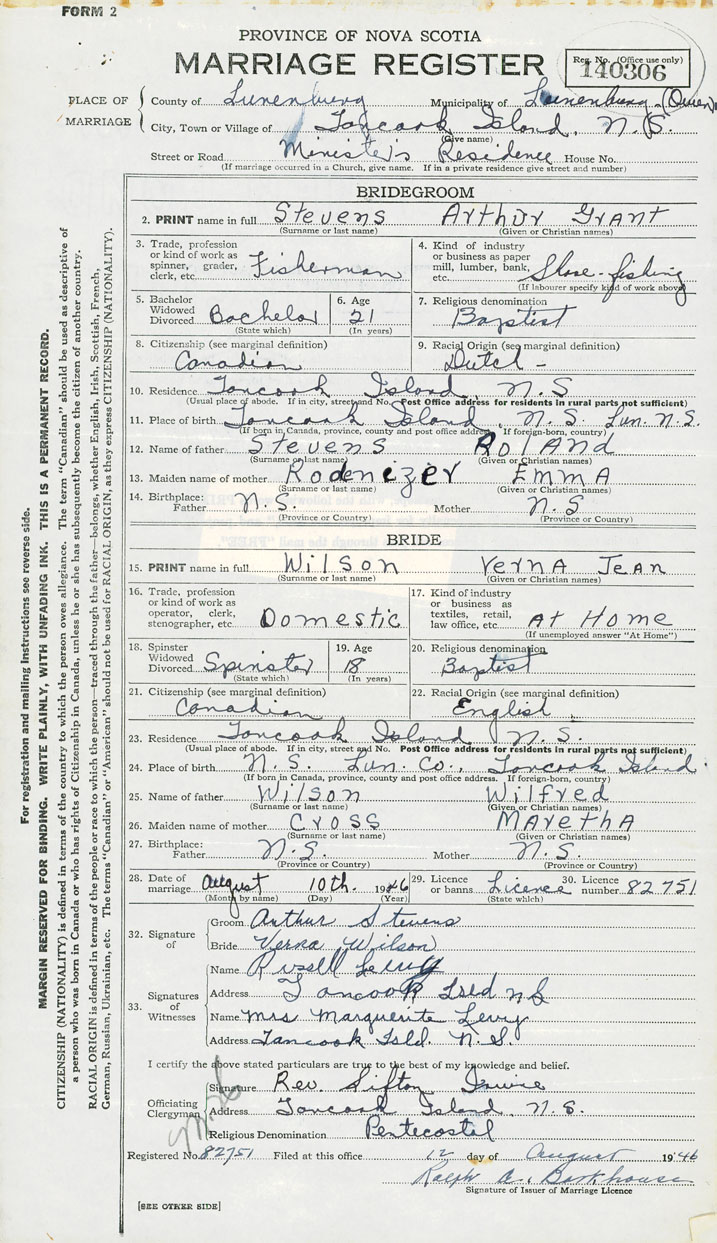 FORM 2
PROVINCE OF NOVA SCOTIA
MARRIAGE REGISTER
Reg. No. (Office use only)
140306
PLACE OF MARRIAGE
County of Lunenburg Municipality of Lunenburg
City, Town or Village of Tancook Island, N.S.
(Give name)
Street or Road Minister's Residence House No.
(If marriage occurred in a Church, give name. If in a private residence give street and number)
BRIDEGROOM
2. PRINT name in full Stevens Arthur Grant
(Surname or last name) (Given or Christian names)
3. Trade, profession or kind of work as spinner, grader, clerk, etc. Fisherman
4. Kind of industry or business as paper mill, lumber, bank, etc. Shore-fishing
(If labourer specify kind of work above)
5. Bachelor Widowed Divorced Bachelor
(State which)
6. Age 21
(In years)
7. Religious denomination
Baptist
8. Citizenship (see marginal definition)
Canadian
9. Racial Origin (see marginal definition)
Dutch -
10. Residence Tancook Island, N.S
(Usual place of abode. If in city, street and No. Post Office address for residents in rural parts not sufficient)
11. Place of birth Tancook Island, N.S. Lun. N.S.
(If born in Canada, province, county and post office address. If foreign-born, country)
12. Name of father Stevens Roland
(Surname or last name) (Given or Christian names)
13. Maiden name of mother Rodenizer Emma
(Surname or last name) (Given or Christian names)
14. Birthplace: Father N.S. Mother N.S
(Province or Country) (Province or Country)
BRIDE
15. PRINT name in full Wilson Verna Jean
(Surname or last name) (Given or Christian names)
16. Trade, profession or kind of work as operator, clerk, stenographer, etc. Domestic
17. Kind of industry or business as textiles, retail, law office, etc. At Home
(If unemployed answer "At Home")
18. Spinster Widowed Divorced Spinster
(State which)
19. Age 18
(In years)
20. Religious denomination
Baptist
21. Citizenship (see marginal definition)
Canadian
22. Racial Origin (see marginal definition)
English
23. Residence Tancook Island N.S.
(Usual place of abode. If in city, street and No. Post Office address for residents in rural parts not sufficient)
24. Place of birth N.S. Lun. Co., Tancook Island
(If born in Canada, province, county and post office address. If foreign-born, country)
25. Name of father Wilson Wilfred
(Surname or last name) (Given or Christian names)
26. Maiden name of mother Cross Maretha
(Surname or last name) (Given or Christian names)
27. Birthplace: Father N.S. Mother N.S.
(Province or Country) (Province or Country)
28. Date of marriage August 10th. 1946
(Month by name) (Day) (Year)
29. Licence or banns Licence
(State which)
30. Licence number 82751
32. Signature of
Groom Arthur Stevens
Bride Verna Wilson
33. Signatures of Witnesses
Name Russell Levy
Address Tancook Isld NS
Name Mrs Marguerite Levy
Address Tancook Isld. N.S.
I certify the above stated particulars are true to the best of my knowledge and belief.
Officiating Clergyman
Signature Rev. Sifton
Address Tancook Island, N.S.
Religious Denomination Pentecostal
Registered No. 82751 Filed at this office 12 day of August 1946
Ralph A. Barkhouse
Signature of Issuer of Marriage Licence
[SEE OTHER SIDE]
For registration and mailing instructions see reverse side.
MARGIN RESERVED FOR BINDING. WRITE PLAINLY, WITH UNFADING INK. THIS IS A PERMANENT RECORD.
CITIZENSHIP (NATIONALITY) is defined in terms of the country to which the person owes allegiance. The term "Canadian" should be used as descriptive of
a person who was born in Canada or who has rights of Citizenship in Canada, unless he or she has subsequently become the citizen of another country.
RACIAL ORIGIN is defined in terms of the people or race to which the person—traced through the father—belongs, whether English, Irish, Scottish, French,
German, Russian, Ukrainian, etc. The terms "Canadian" or "American" should not be used for RACIAL ORIGIN, as they express CITIZENSHIP (NATIONALITY).